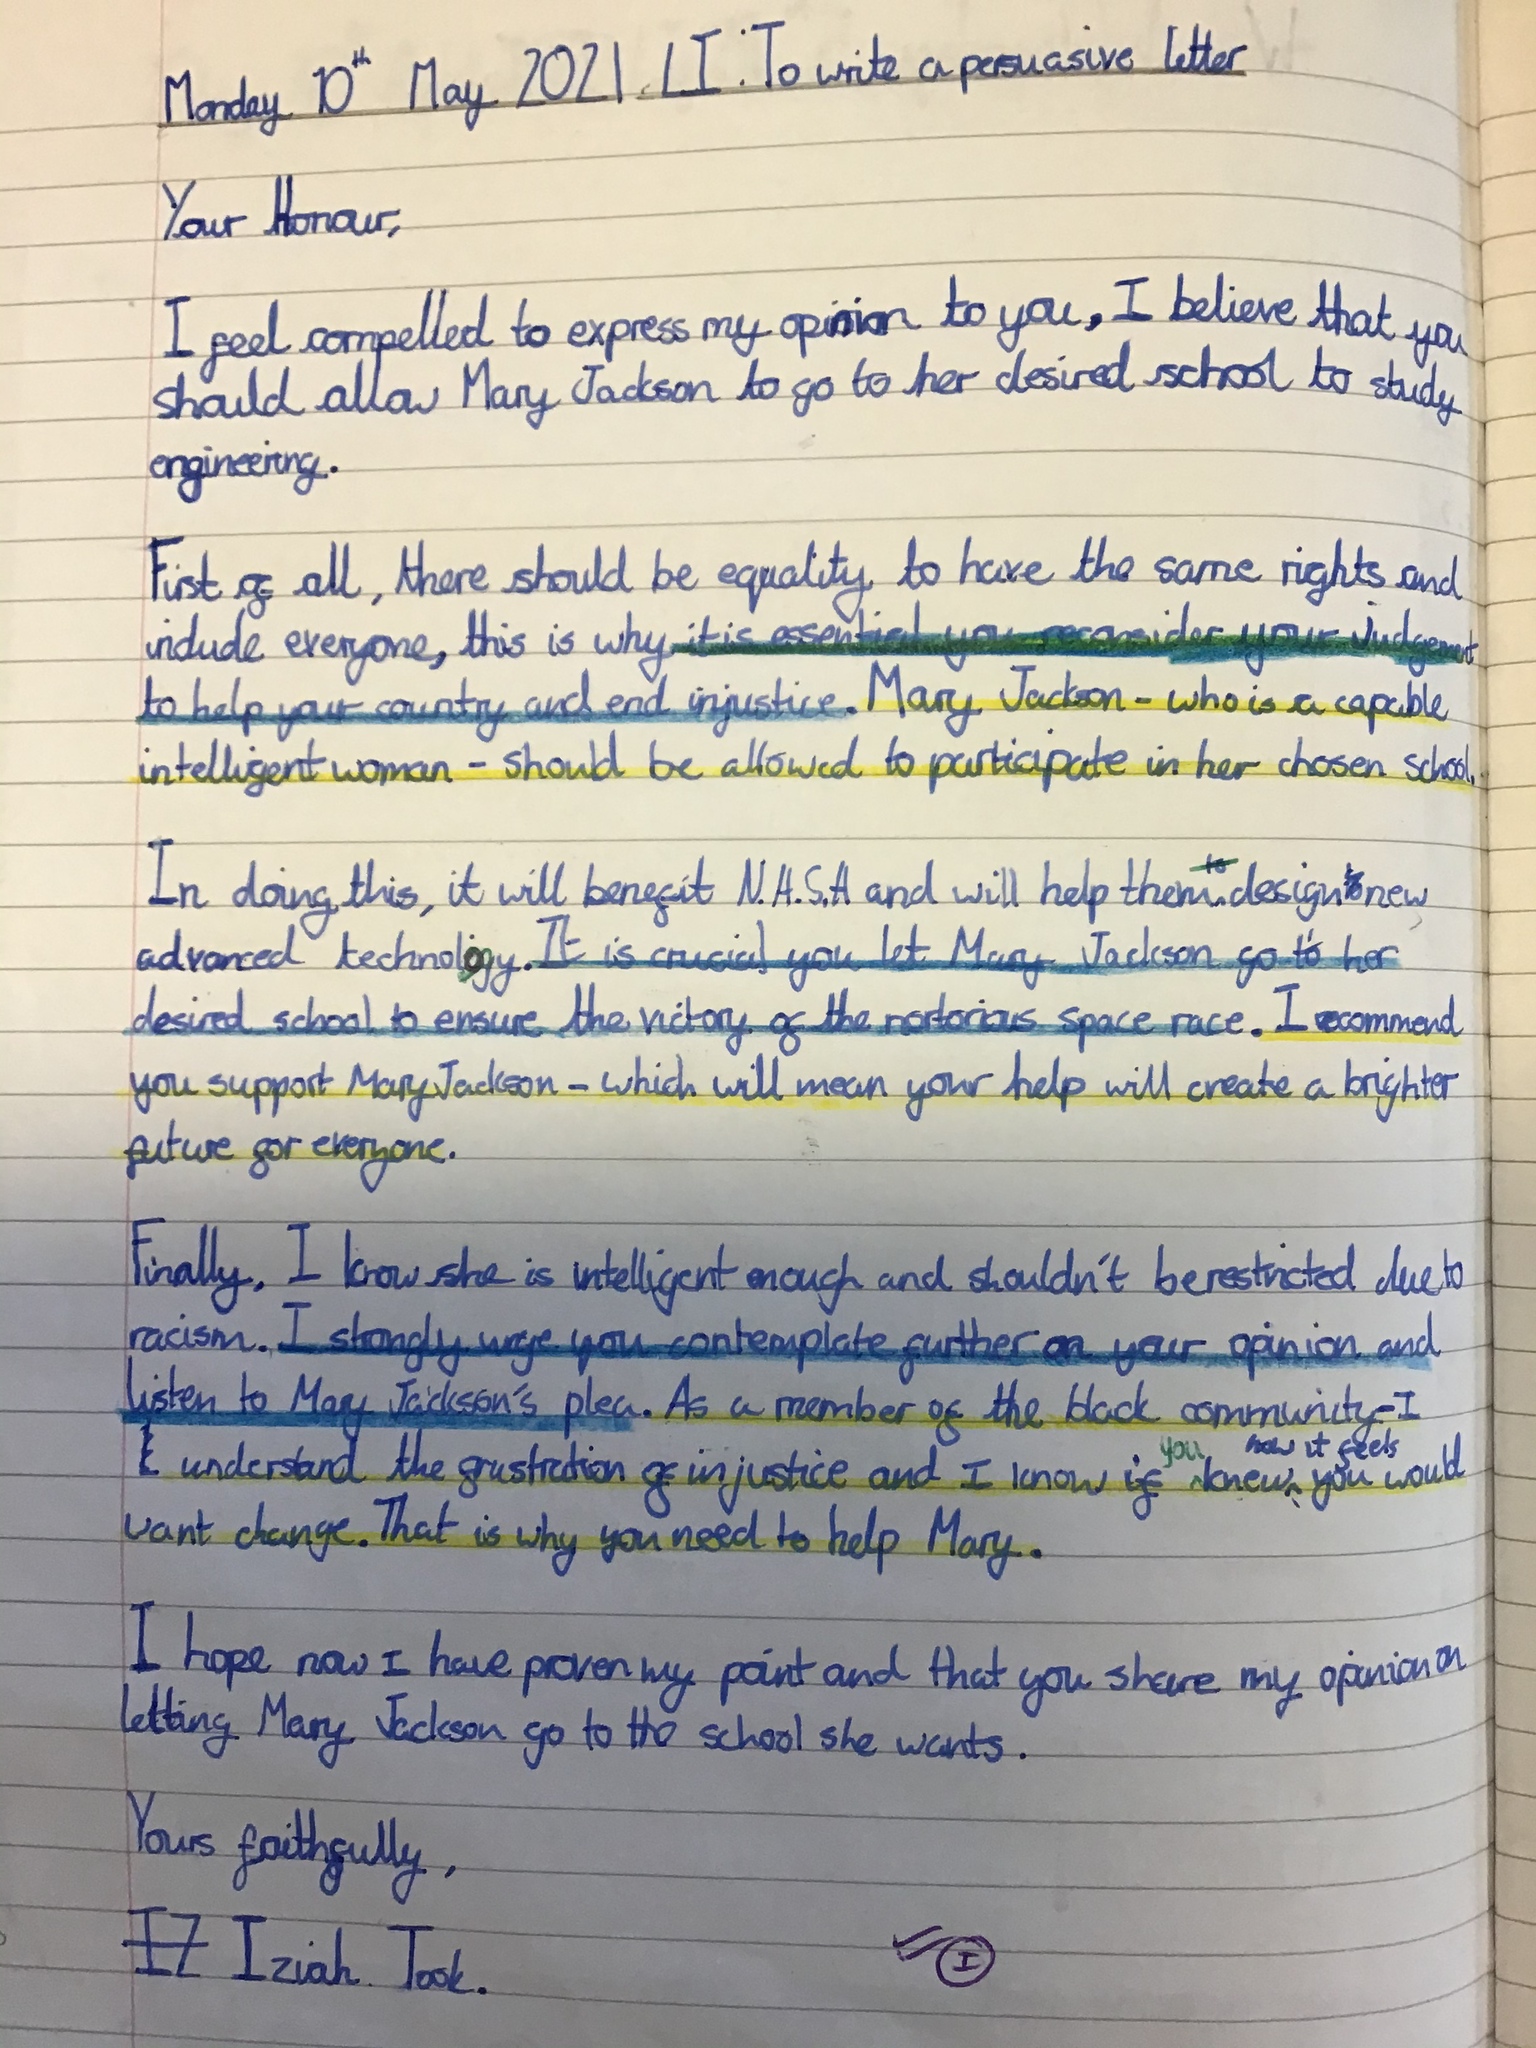 Monday 10th May 2021. LI: To write a persuasive letter
Your Honour,
I feel compelled to express my opinion to you, I believe that you
should allow Mary Jackson to go to her desired school to study
engineering.
First of all, there should be equality to have the same rights and
include everyone, this is why it is essential you reconsider your judgement
to help your country and end injustice. Mary Jackson - who is a capable
intelligent woman - should be allowed to participate in her chosen school.
In doing this, it will benefit N.A.S.A and will help them to design new
advanced technology. It is crucial you let Mary Jackson go to her
desired school to ensure the victory of the nortorious space race. I recommend
you support Mary Jackson - which will mean your help will create a brighter
future for everyone.
Finally, I know she is intelligent enough and shouldn't be restricted due to
racism. I strongly urge you contemplate further on your opinion and
listen to Mary Jackson's plea. As a member of the black community - I
understand the frustration of injustice and I know if you knew how it feels you would
want change. That is why you need to help Mary.
I hope now I have proven my point and that you share my opinion on
letting Mary Jackson go to the school she wants.
Yours faithfully,
IZ Iziah Took.
I